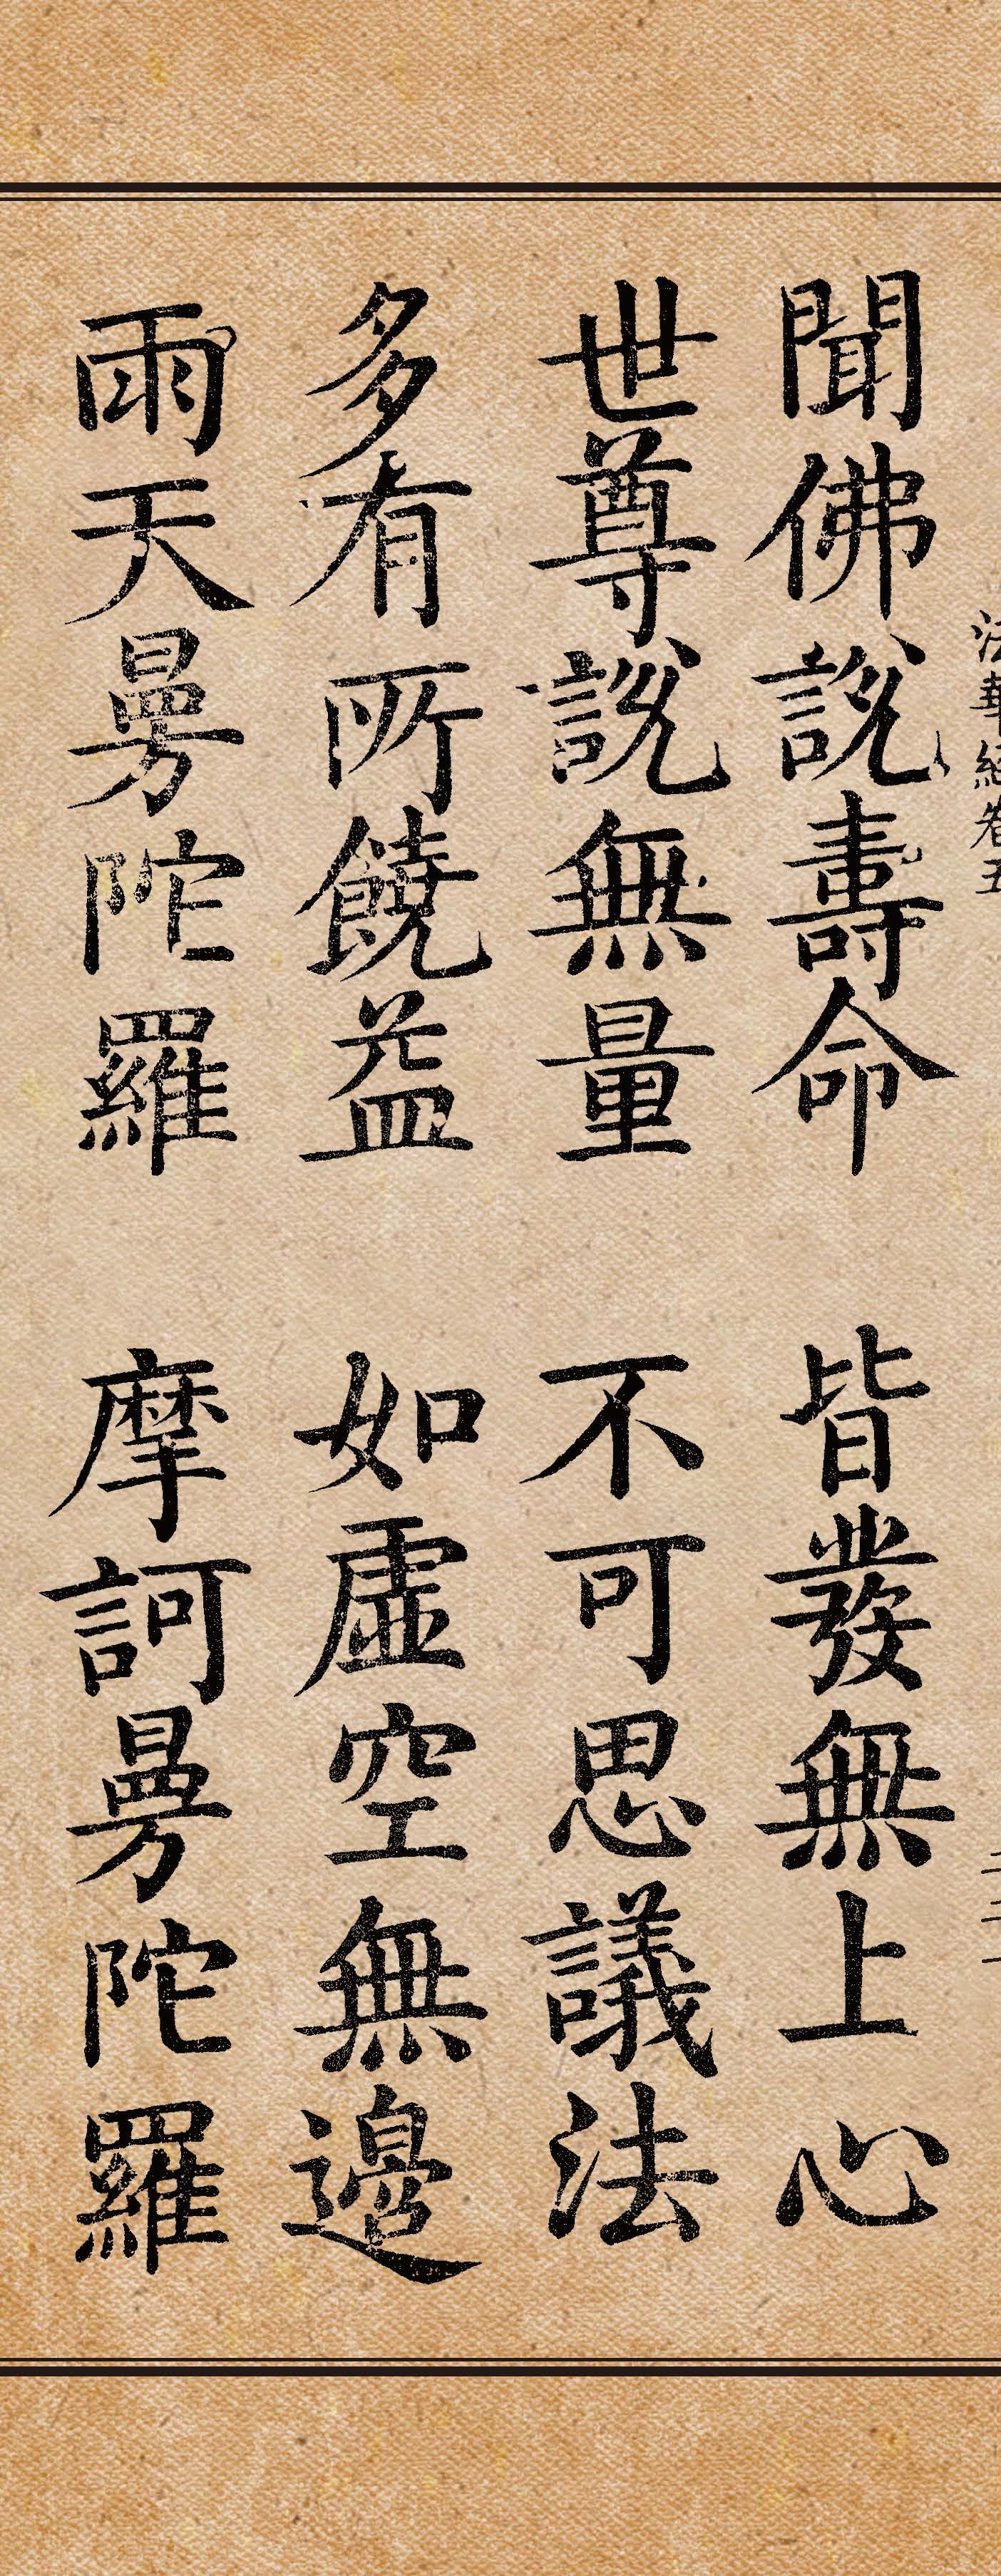 法華經卷五
聞佛說壽命 皆發無上心
世尊說無量 不可思議法
多有所饒益 如虛空無邊
雨天曼陀羅 摩訶曼陀羅